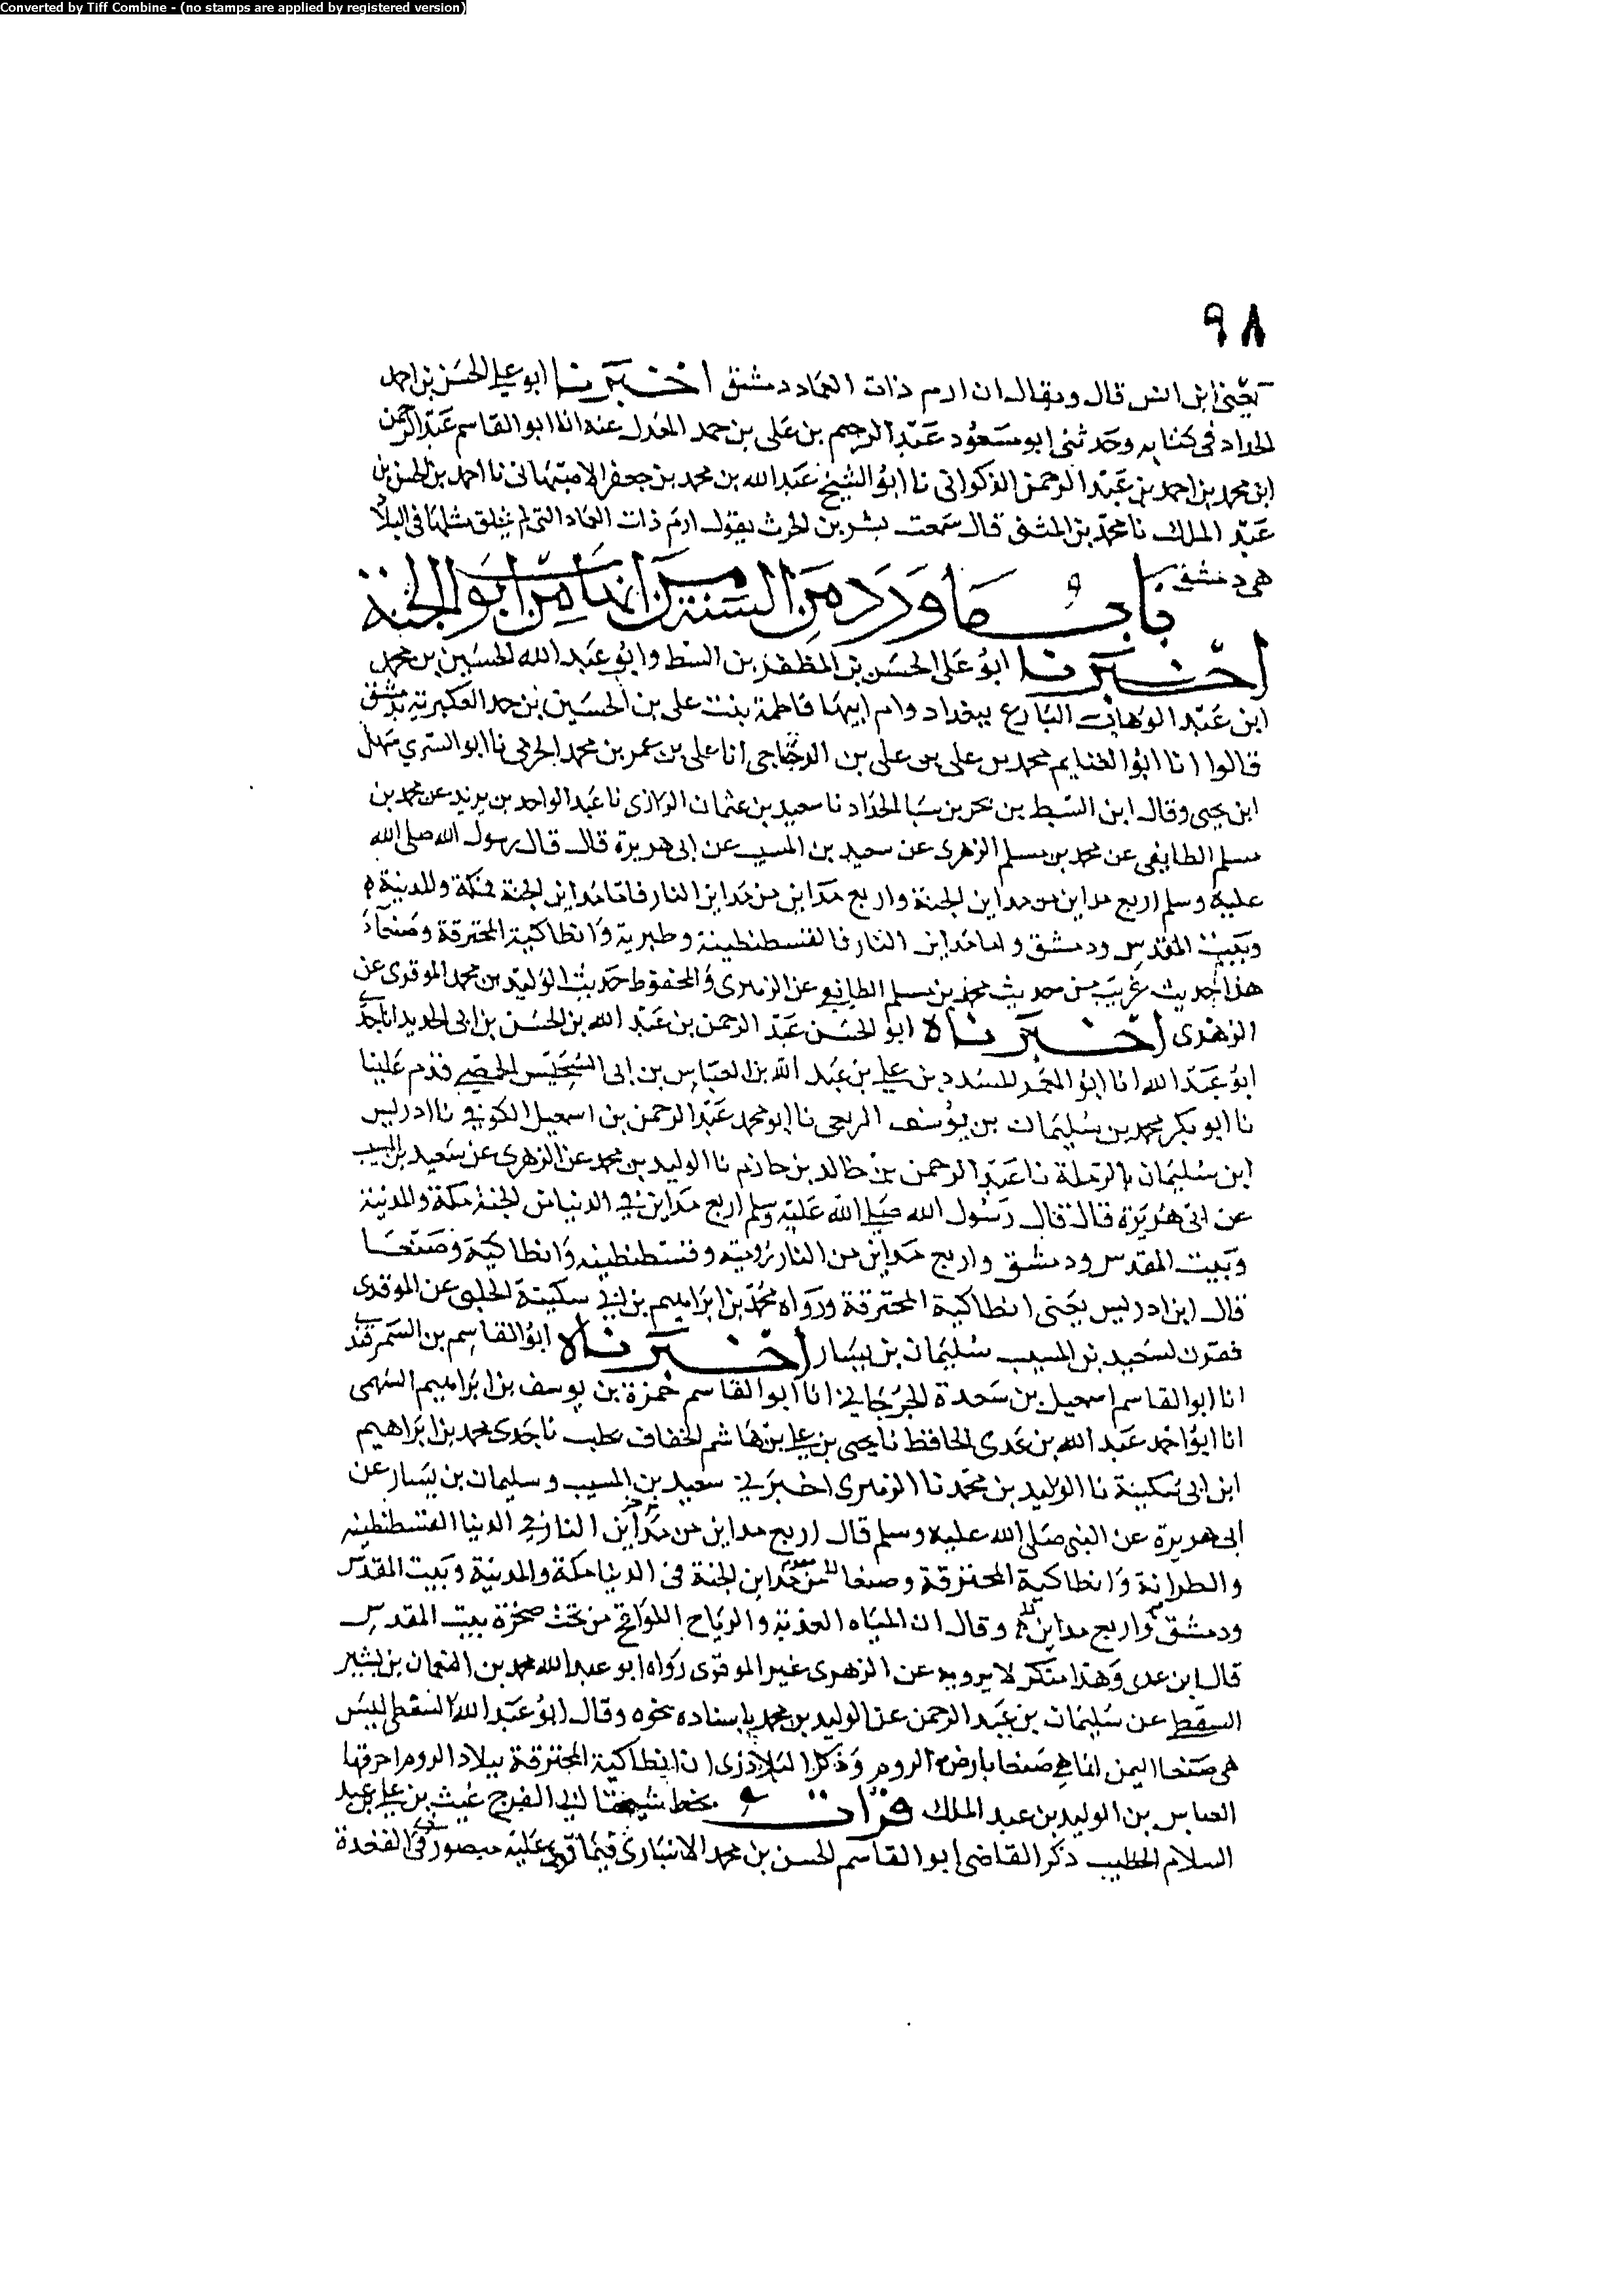 Converted by Tiff Combine - (no stamps are applied by registered version)
٩٨
يعني ابن انس قال ويقال ان ارم ذات العماد دمشق اخبرنا ابو علي الحسن بن احمد
الحداد في كتابه وحدثني ابو مسعود عبد الرحيم بن علي بن حمد المعدل عنه انا ابو القاسم عبد الرحمن
ابن محمد بن احمد بن عبد الرحمن الذكواني نا ابو الشيخ عبد الله بن محمد بن جعفر الاصبهاني نا احمد بن الحسن بن
عبد الملك نا محمد بن المثنى قال سمعت بشر بن الحرث يقول ارم ذات العماد التي لم يخلق مثلها في البلاد
هي دمشق
باب ما ورد من السنة من انها من ابواب الجنة
اخبرنا ابو علي الحسن بن المظفر بن السبط وابو عبد الله الحسين بن محمد
ابن عبد الوهاب البارع ببغداد وام ابيها فاطمة بنت علي بن الحسين بن حمد العكبرية بدمشق
قالوا انا ابو الغنايم محمد بن علي بن علي بن الدجاجي انا علي بن عمر بن محمد الحربي نا ابو السري سهل
ابن يحيى وقال ابن السبط بن بحر بن سبا الحداد نا سعيد بن عثمان الرازي نا عبد الواحد بن يزيد عن محمد بن
مسلم الطايفي عن محمد بن مسلم الزهري عن سعيد بن المسيب عن ابي هريرة قال قال رسول الله صلى الله
عليه وسلم اربع مداين من مداين الجنة واربع مداين من مداين النار فاما مداين الجنة فمكة والمدينة
وبيت المقدس ودمشق واما مداين النار فالقسطنطينة وطبرية وانطاكية المحترقة وصنعاء
هذا حديث غريب من حديث محمد بن مسلم الطايفي عن الزهري والمحفوظ حديث الوليد بن محمد الموقري عن
الزهري اخبرناه ابو الحسن عبد الرحمن بن عبد الله بن الحسن بن ابي الحديد انا جدي
ابو عبد الله انا ابو المعمر المسدد بن علي بن عبد الله بن العباس بن ابي السجيس الحمصي قدم علينا
نا ابو بكر محمد بن سليمان بن يوسف الربعي نا ابو محمد عبد الرحمن بن اسمعيل الكوفي نا ادريس
ابن سليمان بالرملة نا عبد الرحمن بن خالد بن حازم نا الوليد بن محمد عن الزهري عن سعيد بن المسيب
عن ابي هريرة قال قال رسول الله صلى الله عليه وسلم اربع مداين في الدنيا من الجنة مكة والمدينة
وبيت المقدس ودمشق واربع مداين من النار رومية وقسطنطينه وانطاكية وصنعا
قال ابن ادريس يعني انطاكية المحترقة ورواه محمد بن ابراهيم بن ابي سكينة الحلبي عن الموقري
فقرن لسعيد بن المسيب سليمان بن يسار اخبرناه ابو القاسم بن السمرقندي
انا ابو القاسم اسمعيل بن مسعدة الجرجاني انا ابو القاسم حمزة بن يوسف بن ابراهيم السهمي
انا ابو احمد عبد الله بن عدي الحافظ نا يحيى بن علي بن هاشم الخفاف بحلب نا جدي محمد بن ابراهيم
ابن ابي سكينة نا الوليد بن محمد نا الزهري اخبرني سعيد بن المسيب وسليمان بن يسار عن
ابي هريرة عن النبي صلى الله عليه وسلم قال اربع مداين من مداين النار في الدنيا القسطنطينه
والطوانة وانطاكية المحترقة وصنعا من مداين الجنة في الدنيا مكة والمدينة وبيت المقدس
ودمشق واربع مداين وقال ان المياه العذبة والرياح اللواقح من تحت صخرة بيت المقدس
قال ابن عدي وهذا منكر لا يرويه عن الزهري غير الموقري رواه ابو عبد الله محمد بن النعمان بن بشير
السقطي عن سليمان بن عبد الرحمن عن الوليد بن محمد باسناده نحوه وقال ابو عبد الله السقطي ليس
هي صنعا اليمن انما هي صنعا بارض الروم وذكر البلاذري ان انطاكية المحترقة ببلاد الروم احرقها
العباس بن الوليد بن عبد الملك قرات بخط شيخنا ابي الفرج غيث بن علي بن عبد
السلام الخطيب ذكر القاضي ابو القاسم الحسن بن محمد الانباري فيما قرئ عليه بصور في ذي القعدة